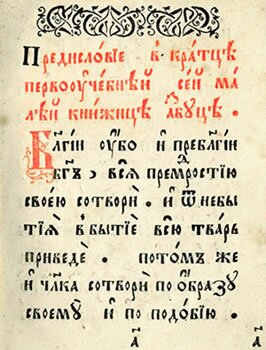 Предисловїе в̾ кра́тцѣ
первоꙋче́бнѣй се́й ма
лѣй кни́жицѣ а҆́збꙋцѣ .
Бл҃гі́й ᲂу҆́бо и҆ пребл҃гі́й
бг҃ъ , всѧ̀ премⷣростїю
свое́ю сотворѝ . и҆ ѿ небы
тїѧ̀ в̾ бытїѐ всю̀ тва́рь
приведѐ . пото́мъ же
и҆ чл҃ка сотворѝ по ѡ҆́бразꙋ
своемꙋ̀ и҆ по подо́бїю .
а҃ а҃